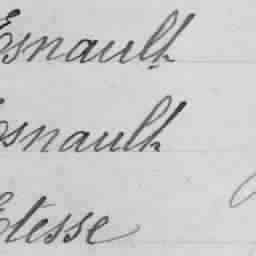 Esnault
Esnault
Etesse